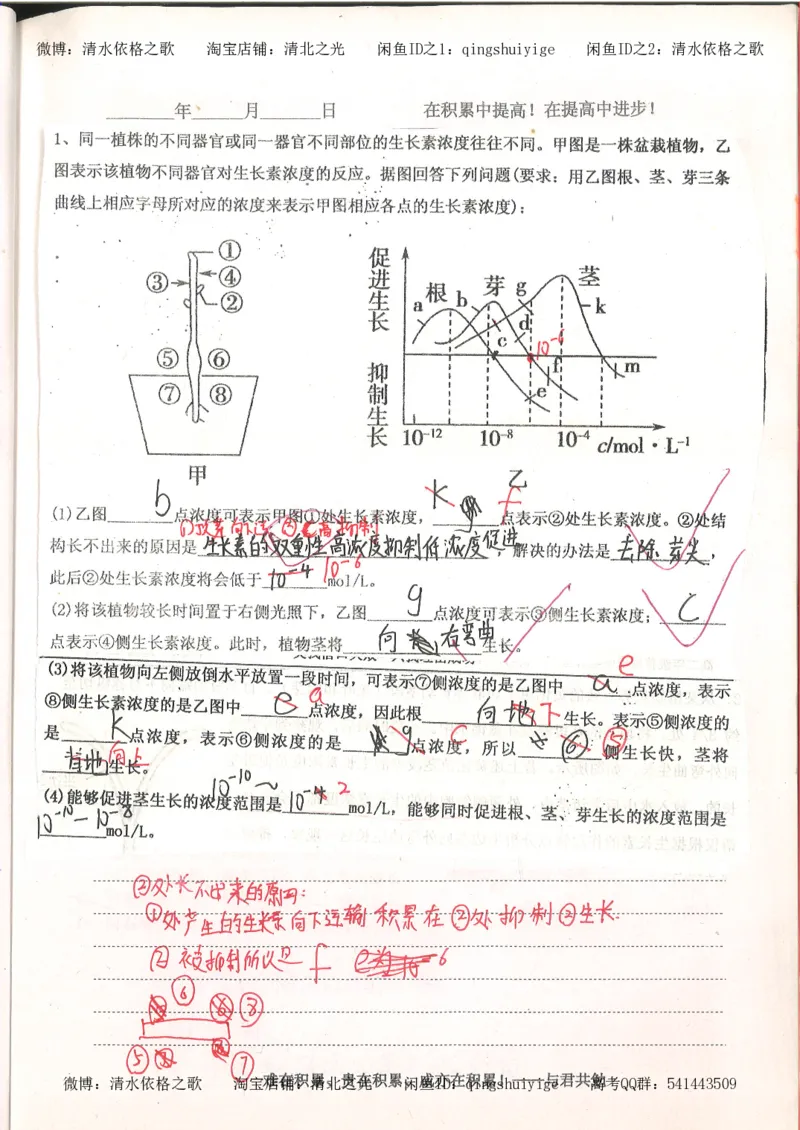 微博：清水依格之歌 淘宝店铺：清北之光 闲鱼ID之1：qingshuiyige 闲鱼ID之2：清水依格之歌
年 月 日 在积累中提高！在提高中进步！
1、同一植株的不同器官或同一器官不同部位的生长素浓度往往不同。甲图是一株盆栽植物，乙
图表示该植物不同器官对生长素浓度的反应。据图回答下列问题(要求：用乙图根、茎、芽三条
曲线上相应字母所对应的浓度来表示甲图相应各点的生长素浓度)：
① ③ ④ ② ⑤ ⑥ ⑦ ⑧
甲
促进生长 抑制生长
根 芽 茎
a b g k c d f e m
10⁻⁶
10⁻¹² 10⁻⁸ 10⁻⁴ c/mol·L⁻¹
乙
(1)乙图 b 点浓度可表示甲图①处生长素浓度， k f 点表示②处生长素浓度。②处结
构长不出来的原因是 生长素的双重性高浓度抑制低浓度促进 ，解决的办法是 去除芽尖 ，
此后②处生长素浓度将会低于 10⁻⁴ 10⁻⁶ mol/L。
(2)将该植物较长时间置于右侧光照下，乙图 g 点浓度可表示③侧生长素浓度； c
点表示④侧生长素浓度。此时，植物茎将 向右弯曲 生长。
(3)将该植物向左侧放倒水平放置一段时间，可表示⑦侧浓度的是乙图中 a e 点浓度，表示
⑧侧生长素浓度的是乙图中 e a 点浓度，因此根 向地 下 生长。表示⑤侧浓度的
是 k 点浓度，表示⑥侧浓度的是 g c 点浓度，所以 ⑥ ⑤ 侧生长快，茎将
背地 向上 生长。
(4)能够促进茎生长的浓度范围是 10⁻¹⁰～10⁻⁴ 2 mol/L，能够同时促进根、芽、茎生长的浓度范围是
10⁻¹⁰－10⁻⁸ mol/L。
②处长不出来的原因：
①处产生的生长素向下运输 积累在②处抑制②生长.
② 被抑制所以是 f
⑥ ⑧
⑤ ⑦
难在积累，贵在积累，成亦在积累！——与君共勉
微博：清水依格之歌 淘宝店铺：清北之光 闲鱼ID之1：qingshuiyige 高考QQ群：541443509